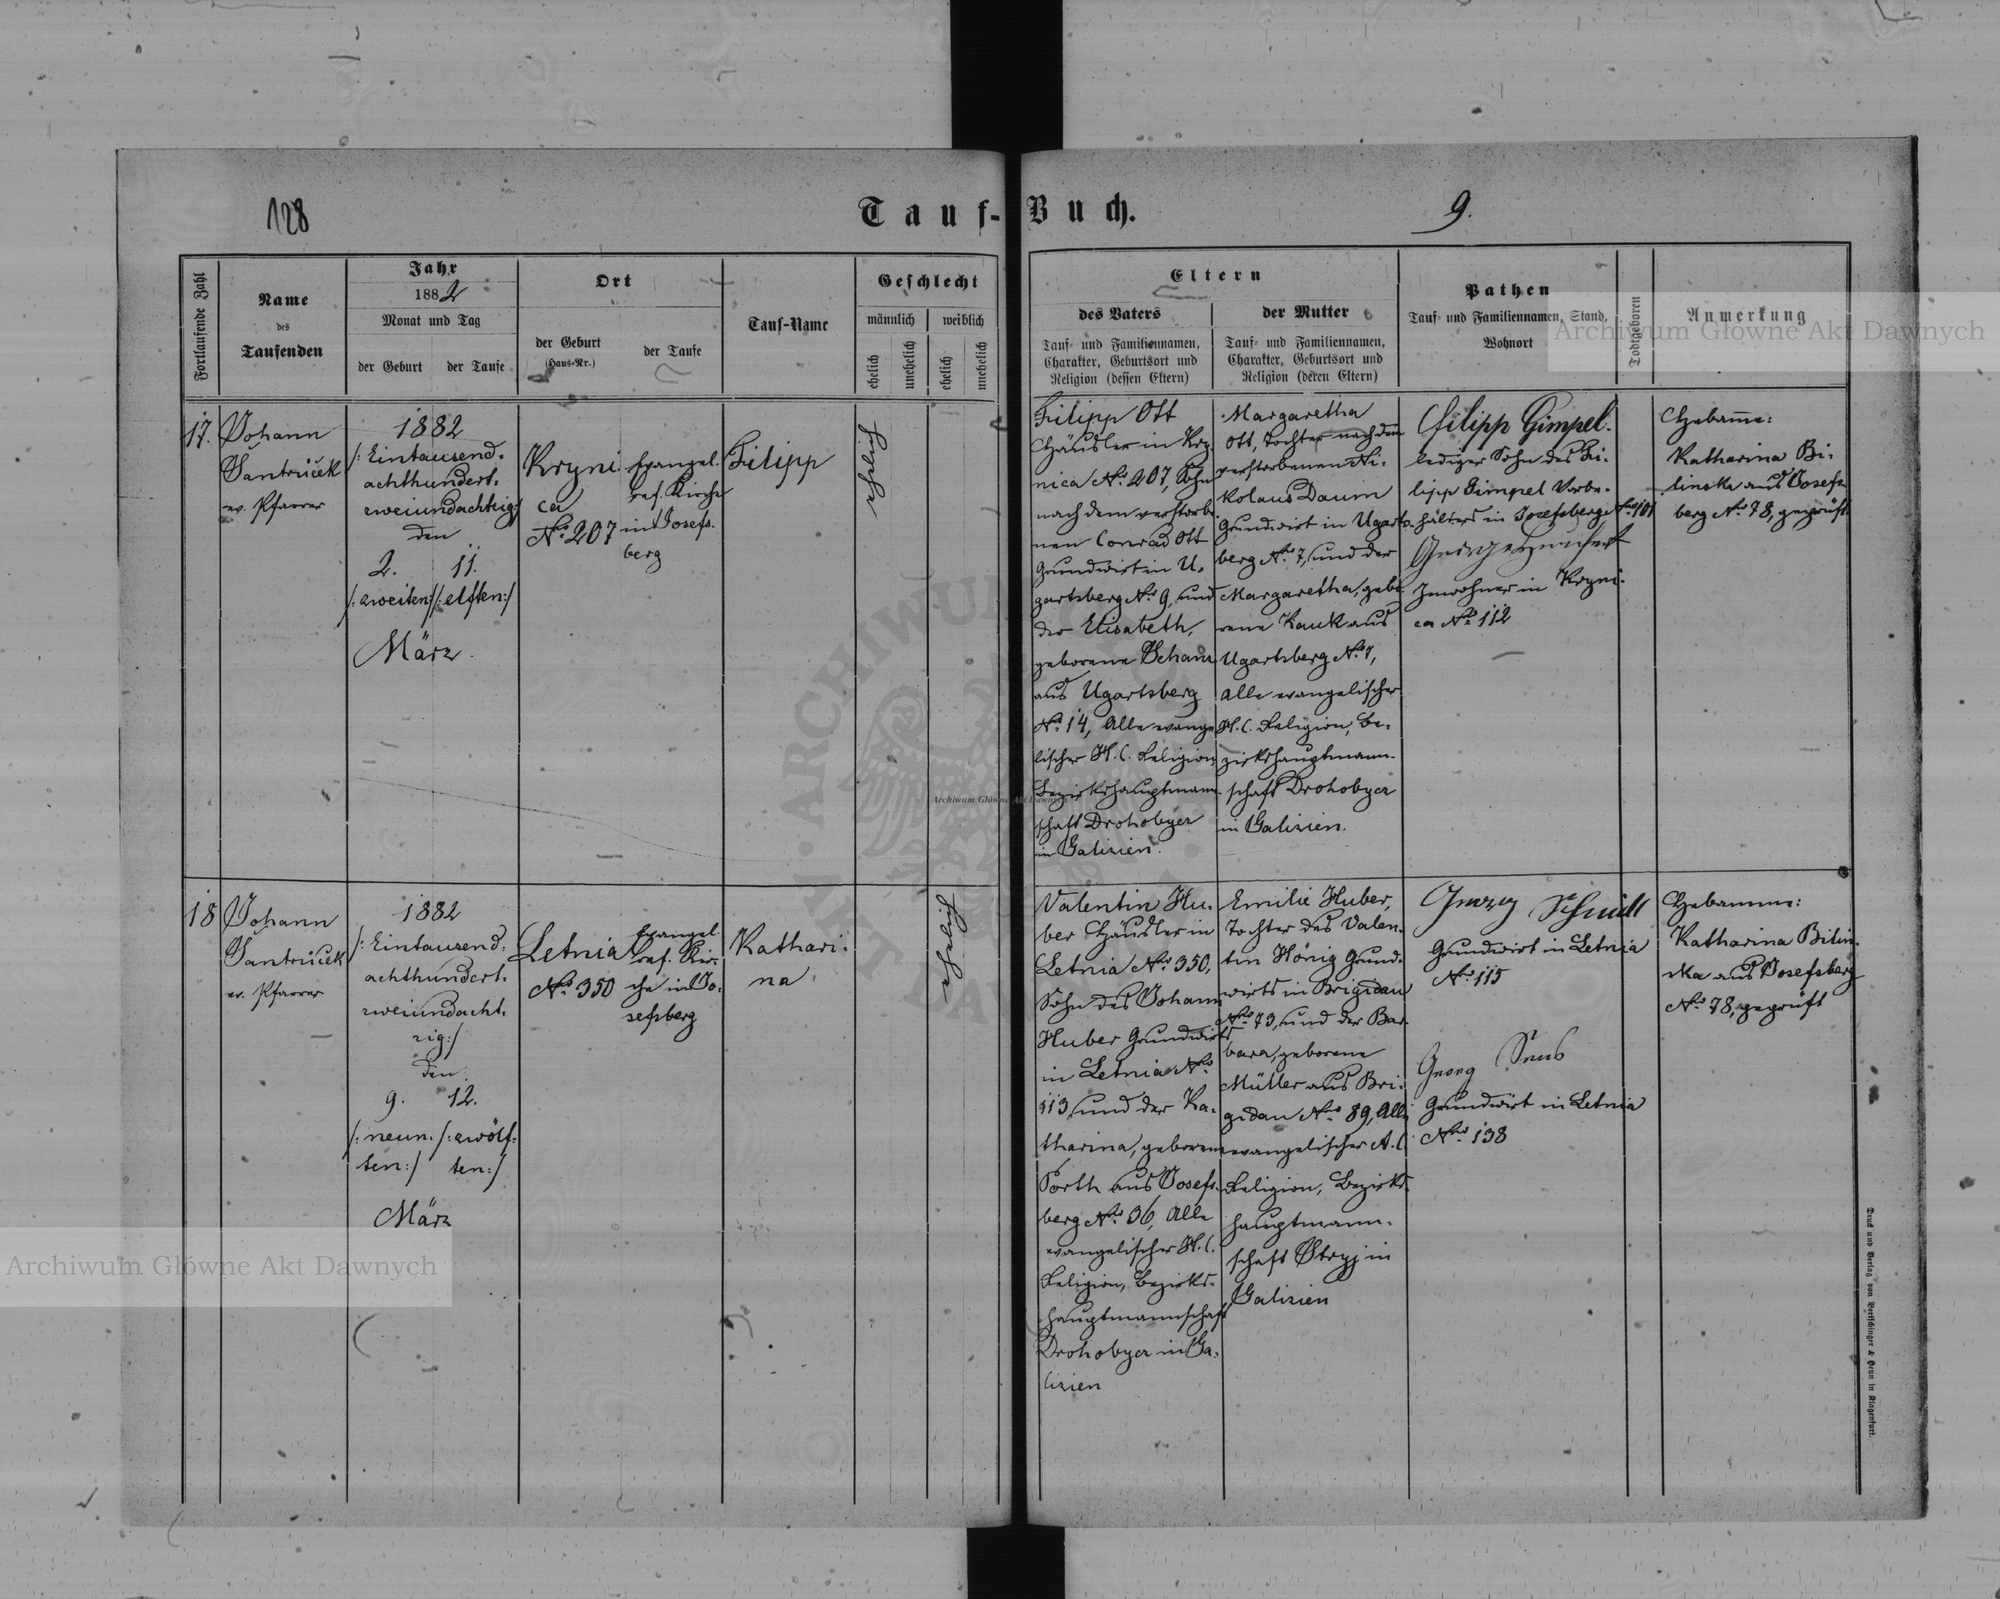 128
Tauf-Buch.
9.
Fortlaufende Zahl
Name
des
Taufenden
Jahr
1882
Monat und Tag
der Geburt
der Taufe
Ort
der Geburt
(Haus-Nr.)
der Taufe
Tauf-Name
Geschlecht
männlich
weiblich
ehelich
unehelich
ehelich
unehelich
Eltern
des Vaters
Tauf- und Familiennamen,
Charakter, Geburtsort und
Religion (dessen Eltern)
der Mutter
Tauf- und Familiennamen,
Charakter, Geburtsort und
Religion (deren Eltern)
Pathen
Tauf- und Familiennamen, Stand,
Wohnort
Todtgeboren
Anmerkung
17.
Johann
Santrůček
ev. Pfarrer
1882
/:Eintausend-
achthundert-
zweiundachtzig:/
den
2. 11.
/:zweiten:/ /:elften:/
März.
Kryni
ca
No. 207
Evangel.
ref. Kirche
in Josefs-
berg
Filipp
ehelich
Filipp Ott
Häusler in Kry-
nica No. 207, Sohn
nach dem verstorbe-
nen Conrad Ott
Grundwirt in U-
gartsberg No. 9, und
der Elisabeth,
geborene
aus Ugartsberg
No. 14, Alle evange-
lischer H. C. Religion
Bezirkshauptmann-
schaft Drohobycz
in Galizien.
Margaretha
Ott, Tochter nach dem
verstorbenen Ni-
kolaus Daum
Grundwirt in Ugarts-
berg No. 7, und der
Margaretha, gebo-
rene Kauk aus
Ugartsberg No. 7,
Alle evangelischer
H. C. Religion, Be-
zirkshauptmann-
schaft Drohobycz
in Galizien.
Filipp Gimpel.
lediger Sohn des Fi-
lipp Gimpel Vorbe-
hälters in Josefsberg No. 101
George
Inwohner in Kryni-
ca No. 112
Hebamme:
Katharina Bi-
linska aus Josefs-
berg No. 78, geprüft
18
Johann
Santrůček
ev. Pfarrer
1882
/:Eintausend-
achthundert-
zweiundacht-
zig:/
den
9. 12.
/:neun- /:zwölf-
ten:/ ten:/
März
Letnia
No. 350
Evangel.
ref. Kir-
che in Jo-
sefsberg
Kathari-
na
ehelich
Valentin Hu-
ber Häusler in
Letnia No. 350,
Sohn des Johann
Huber Grundwirts
in Letnia No.
113, und der Ka-
tharina, geborene
Porth aus Josefs-
berg No. 36, Alle
evangelischer H. C.
Religion, Bezirks-
hauptmannschaft
Drohobycz in Ga-
lizien
Emilie Huber,
Tochter des Valen-
tin Hönig Grund-
wirts in Brigidau
No. 73, und der Bar-
bara, geborene
Müller aus Bri-
gidau No. 89, Alle
evangelischer A. C.
Religion, Bezirks-
hauptmann-
schaft Stryj in
Galizien
Georg Schmidt
Grundwirt in Letnia
No. 115
Georg Sens
Grundwirt in Letnia
No. 138
Hebamme:
Katharina Bilin-
ska aus Josefsberg
No. 78, geprüft
Druck und Verlag von Bertschinger & Heyn in Klagenfurt.
Archiwum Główne Akt Dawnych
Archiwum Główne Akt Dawnych
Archiwum Główne Akt Dawnych